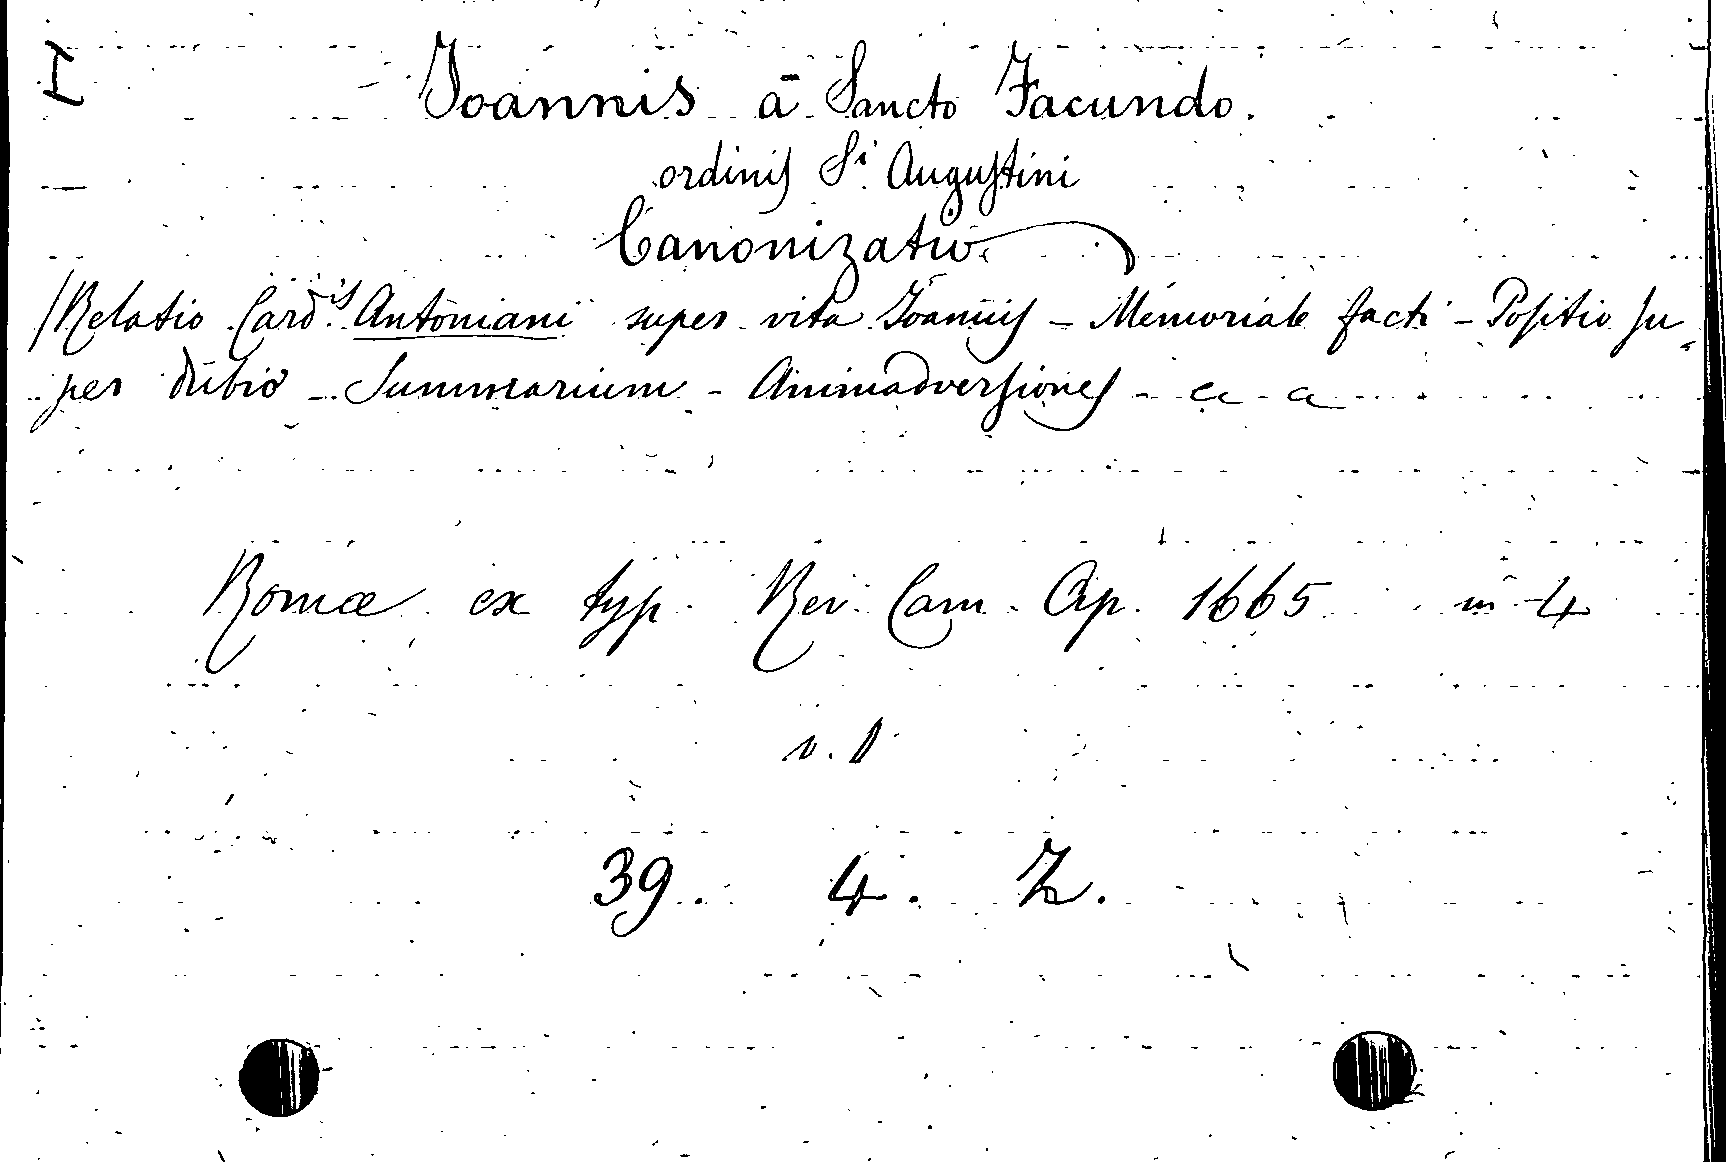 I
Joannis a Sancto Facundo.
ordinis Si Augustini
Canonizatio.
/Relatio Cardis Antoniani super vita Joannis - Memoriale facti - Positio su-
per dubio - Summarium - Animadversiones -
Romæ ex typ. Rev. Cam. Ap. 1665 in 4
v. 1
39. 4. Z.